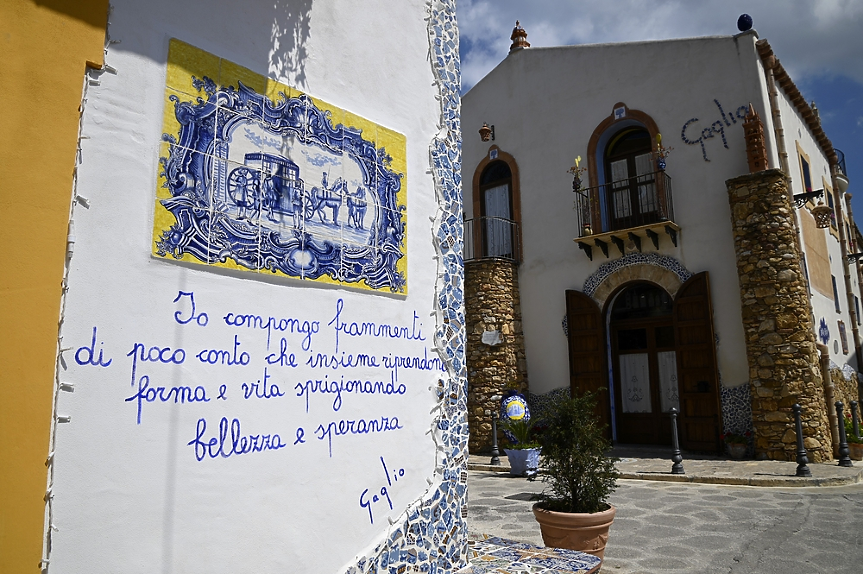 Io compongo frammenti
di poco conto che insieme riprendono
forma e vita sprigionando
bellezza e speranza
Gaglio
Gaglio